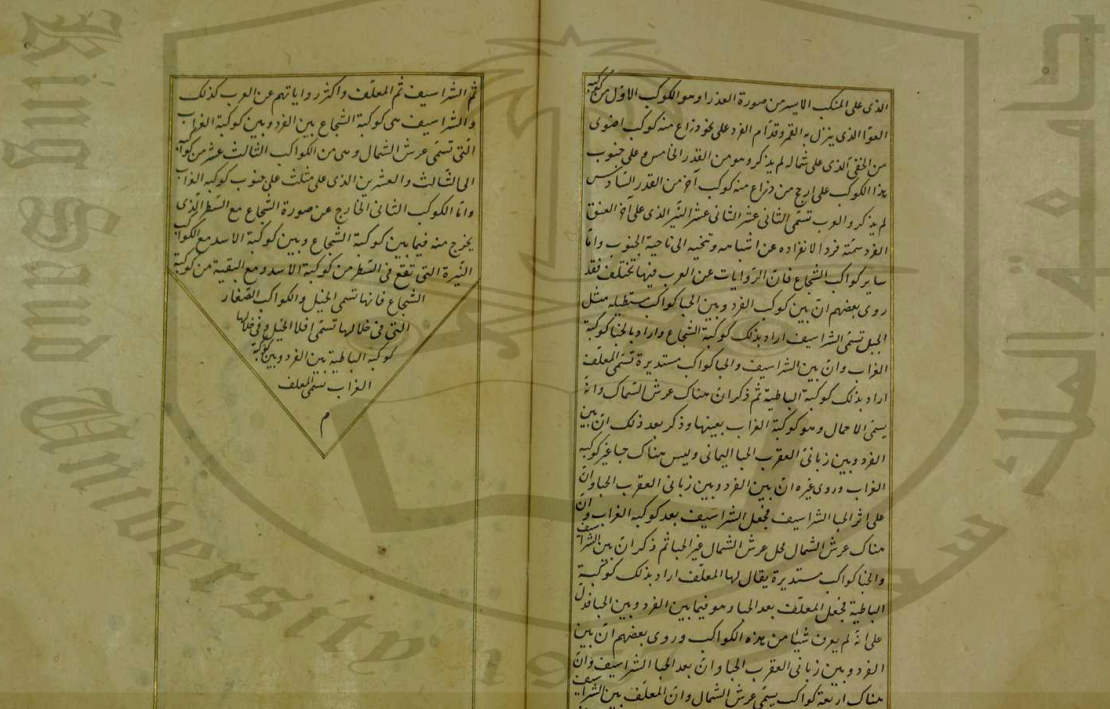 الذى على المنكب الايسر من صورة العذرا وهو الكوكب الاول من كوكبة
العوّا الذى ينزل به القمر وقدّام الفرد على نحو ذراع منه كوكب اضوى
من الخفىّ الذى على شماله لم يذكر وهو من القدر الخامس وعلى جنوب
هذا الكوكب على ارجح من ذراع منه كوكب آخر من القدر السادس
لم يذكر والعرب تسمى الثانى عشر النيّر الذى على آخر العنق
الفرد سمّته فردا لانفراده عن اشباهه وتنحّيه الى ناحية الجنوب وامّا
ساير كواكب الشجاع فانّ الرّوايات عن العرب فيها تختلف فقد
روى بعضهم انّ بين كوكب الفرد وبين الخبا كواكب مستطيلة مثل
الحبل تسمّى الشراسيف اراد بذلك كوكبة الشجاع واراد بالخبا كوكبة
الغراب وانّ بين الشراسيف والخبا كواكب مستديرة تسمّى المعلف
اراد بذلك كوكبة الباطية ثمّ ذكر انّ هناك عرش السّماك وانّه
يسمّى الاحمال وهو كوكبة الغراب بعينها وذكر بعد ذلك انّ بين
الفرد وبين زبانى العقرب الخبا اليمانى وليس هناك خبا غير كوكبة
الغراب وروى غيره انّ بين الفرد وبين زبانى العقرب الخبا وانّ
على اثر الخبا الشراسيف فجعل الشراسيف بعد كوكبة الغراب وانّ
هناك عرش الشمال فجعل عرش الشمال غير الخبا ثم ذكر انّ بين الشراسيف
والخبا كواكب مستديرة يقال لها المعلف اراد بذلك كوكبة
الباطية فجعل المعلف بعد الخبا وهو فيما بين الفرد وبين الخبا فدلّ
على انّه لم يعرف شيئا من هذه الكواكب وروى بعضهم انّ بين
الفرد وبين زبانى العقرب الخبا وانّ بعد الخبا الشراسيف وانّ
هناك اربعة كواكب يسمّى عرش الشمال وانّ المعلف بين الشراسيف
ثمّ الشراسيف ثمّ المعلف واكثر رواياتهم عن العرب كذلك
والشراسيف هى كوكبة الشجاع بين الفرد وبين كوكبة الغراب
التى تسمّى عرش الشمال وهى من الكواكب الثالث عشر من كواكبه
الى الثالث والعشرين الذى على مثلث على جنوب كوكبة الغراب
وامّا الكوكب الثانى الخارج عن صورة الشجاع مع السّطر الذى
يخرج منه فيما بين كوكبة الشجاع وبين كوكبة الاسد مع الكواكب
النيّرة التى تقع فى السّطر من كوكبة الاسد ومع البقية من كوكبة
الشجاع فانها تسمى الخيل والكواكب الصّغار
التى فى خلالها تسمّى افلا الخيل وفى خلالها
كوكبة الباطية بين الفرد وبين كوكبة
الغراب يسمّى المعلف
م
King Saud University 19
جامعة الملك سعود